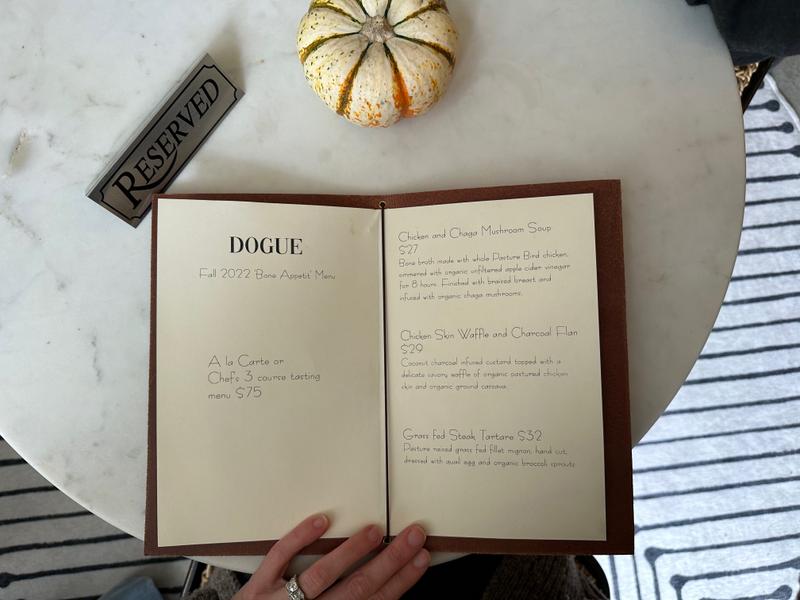 RESERVED
DOGUE
Fall 2022 'Bone Appetit' Menu
A la Carte or
Chefs 3 course tasting
menu $75
Chicken and Chaga Mushroom Soup
$27
Bone broth made with whole Pasture Bird chicken,
simmered with organic unfiltered apple cider vinegar
for 8 hours. Finished with braised breast and
infused with organic chaga mushrooms.
Chicken Skin Waffle and Charcoal Flan
$29
Coconut charcoal infused custard topped with a
delicate savory waffle of organic pastured chicken
skin and organic ground cassava.
Grass fed Steak Tartare $32
Pasture raised grass fed fillet mignon, hand cut,
dressed with quail egg and organic broccoli sprouts